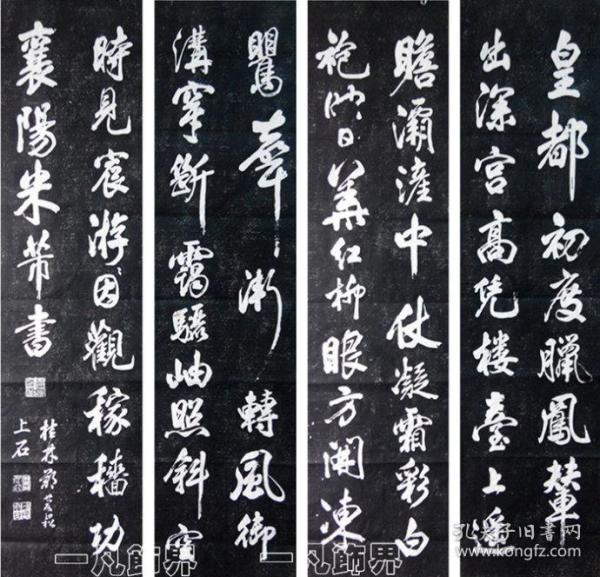 皇都初度臘鳳輦
出深宮高凭樓臺上遥
瞻灞滻中仗凝霜彩白
袍映日華紅柳眼方開凍
鸎聲漸轉風御
溝穿斷靄驪岫照斜空
時見宸游因觀稼穡功
襄陽米芾書
桂林
上石
一凡飾界
一凡飾界
孔夫子旧书网
www.kongfz.com